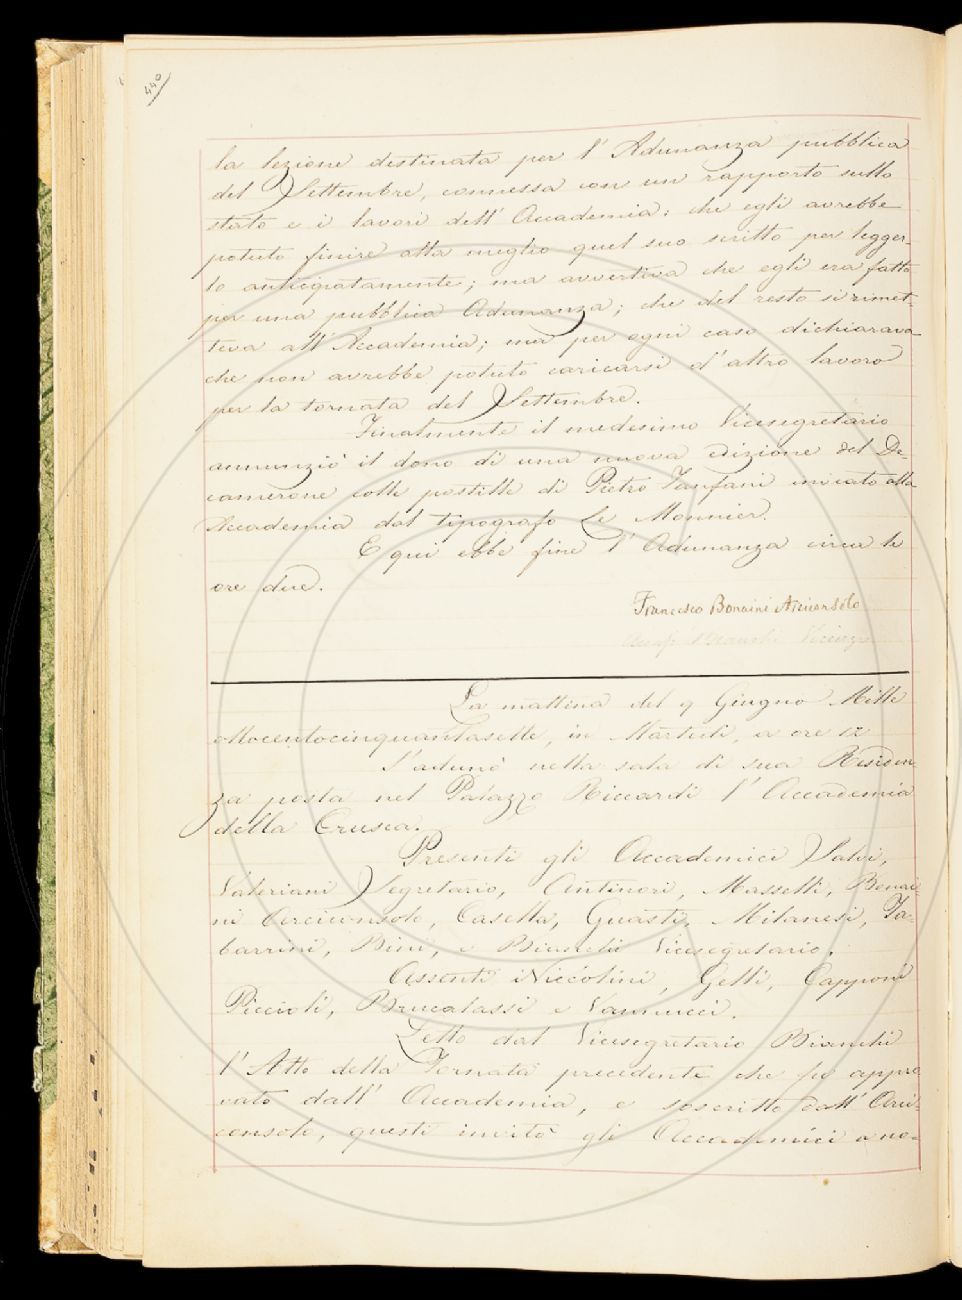 440
la lezione destinata per l'Adunanza pubblica
del Settembre, connessa con un rapporto sullo
stato e i lavori dell'Accademia: che egli avrebbe
potuto finire alla meglio quel suo scritto per legger-
lo anticipatamente; ma avvertiva che egli era fatto
per una pubblica Adunanza; che del resto si rimet-
teva all'Accademia; ma per ogni caso dichiarava
che non avrebbe potuto caricarsi d'altro lavoro
per la tornata del Settembre.
Finalmente il medesimo Vicesegretario
annunziò il dono di una nuova edizione del De-
camerone colle postille di Pietro Fanfani inviato alla
Accademia dal tipografo Le Monnier.
E qui ebbe fine l'Adunanza circa le
ore due.
Francesco Bonaini Arciconsolo
Bianchi Vicesegr
La mattina del 9 Giugno Mille
ottocentocinquantasette, in Martedì, a ore 12
S'adunò nella sala di sua Residen-
za posta nel Palazzo Riccardi l'Accademia
della Crusca.
Presenti gli Accademici Salvi,
Valeriani Segretario, Antinori, Masselli, Bonai-
ni Arciconsolo, Casella, Guasti, Milanesi, Ta-
barrini, Bini, e Bianchi Vicesegretario.
Assenti i Niccolini, Gelli, Capponi
Piccioli, Brucalassi e Vannucci.
Letto dal Vicesegretario Bianchi
l'Atto della Tornata precedente che fu appro
vato dall'Accademia, e soscritto dall'Arci-
consolo, questi invitò gli Accademici a no-